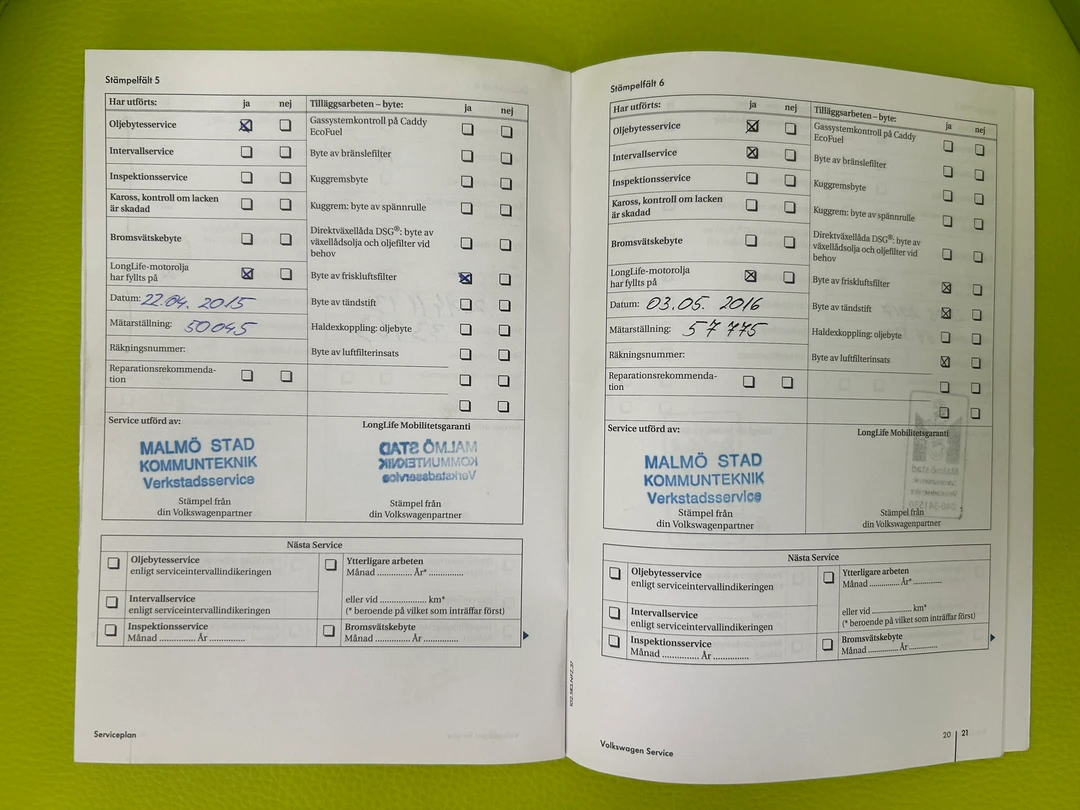 Stämpelfält 5
Har utförts: ja nej
Oljebytesservice
Intervallservice
Inspektionsservice
Kaross, kontroll om lacken
är skadad
Bromsvätskebyte
LongLife-motorolja
har fyllts på
Datum: 22.04. 2015
Mätarställning: 50045
Räkningsnummer:
Reparationsrekommenda-
tion
Tilläggsarbeten – byte: ja nej
Gassystemkontroll på Caddy
EcoFuel
Byte av bränslefilter
Kuggremsbyte
Kuggrem: byte av spännrulle
Direktväxellåda DSG®: byte av
växellådsolja och oljefilter vid
behov
Byte av friskluftsfilter
Byte av tändstift
Haldexkoppling: oljebyte
Byte av luftfilterinsats
Service utförd av:
MALMÖ STAD
KOMMUNTEKNIK
Verkstadsservice
Stämpel från
din Volkswagenpartner
LongLife Mobilitetsgaranti
MALMÖ STAD
KOMMUNTEKNIK
Verkstadsservice
Stämpel från
din Volkswagenpartner
Nästa Service
Oljebytesservice
enligt serviceintervallindikeringen
Intervallservice
enligt serviceintervallindikeringen
Inspektionsservice
Månad ............. År .............
Ytterligare arbeten
Månad ............. År* .............
eller vid .................... km*
(* beroende på vilket som inträffar först)
Bromsvätskebyte
Månad ............. År .............
Serviceplan
Stämpelfält 6
Har utförts: ja nej
Oljebytesservice
Intervallservice
Inspektionsservice
Kaross, kontroll om lacken
är skadad
Bromsvätskebyte
LongLife-motorolja
har fyllts på
Datum: 03.05. 2016
Mätarställning: 57 775
Räkningsnummer:
Reparationsrekommenda-
tion
Tilläggsarbeten – byte: ja nej
Gassystemkontroll på Caddy
EcoFuel
Byte av bränslefilter
Kuggremsbyte
Kuggrem: byte av spännrulle
Direktväxellåda DSG®: byte av
växellådsolja och oljefilter vid
behov
Byte av friskluftsfilter
Byte av tändstift
Haldexkoppling: oljebyte
Byte av luftfilterinsats
Service utförd av:
MALMÖ STAD
KOMMUNTEKNIK
Verkstadsservice
Stämpel från
din Volkswagenpartner
LongLife Mobilitetsgaranti
Malmö stad
Stämpel från
din Volkswagenpartner
Nästa Service
Oljebytesservice
enligt serviceintervallindikeringen
Intervallservice
enligt serviceintervallindikeringen
Inspektionsservice
Månad ............. År .............
Ytterligare arbeten
Månad ............. År* .............
eller vid .................... km*
(* beroende på vilket som inträffar först)
Bromsvätskebyte
Månad ............. År .............
Volkswagen Service
20 21